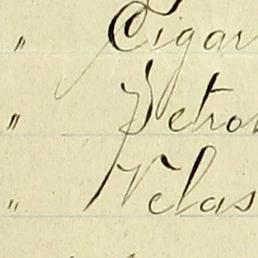 " Cigar
" Petrol
" Velas